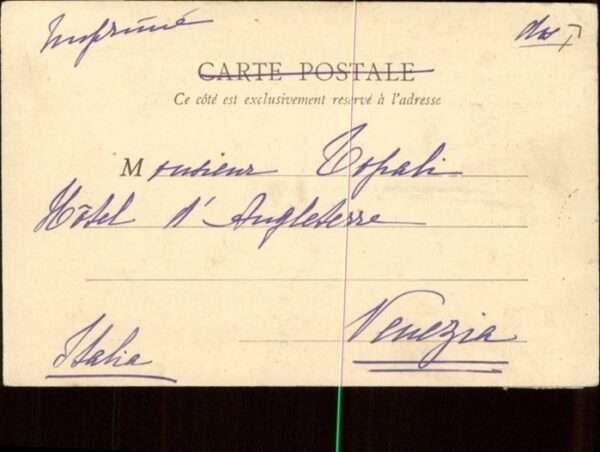 Imprimé
CARTE POSTALE
Ce côté est exclusivement reservé à l'adresse
Monsieur Topali
Hôtel d'Angleterre
Venezia
Italia